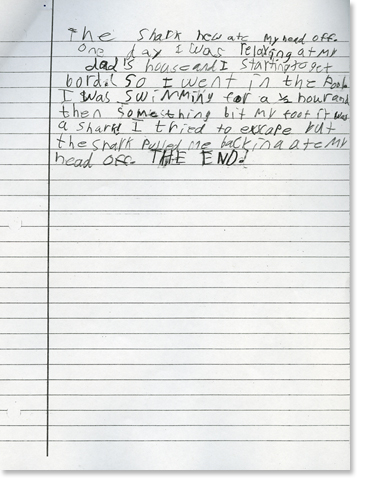 the shark how ate my head off.
one day I was relaxing at my
dad's house and I starting to get
bord. So I went in the Pool.
I was swimming for a ½ hour and
then something bit my foot it was
a shark! I tried to exscape but
the shark pulled me back in a ate my
head off. THE END!